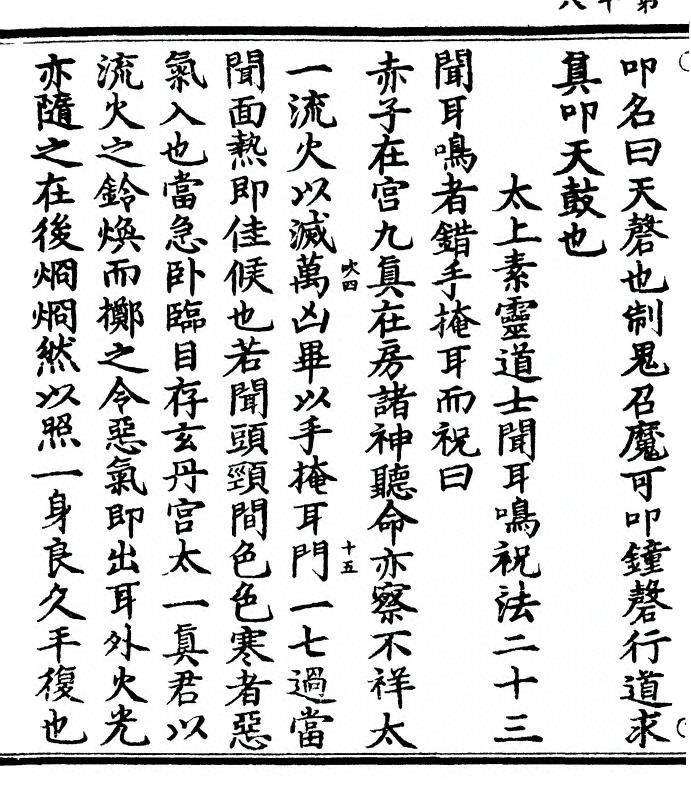 叩名曰天磬也制鬼召魔可叩鐘磬行道求
真叩天鼓也
太上素靈道士聞耳鳴祝法二十三
聞耳鳴者錯手掩耳而祝曰
赤子在宮九真在房諸神聽命亦察不祥太
一流火以滅萬凶畢以手掩耳門一七過當
聞面熱即佳候也若聞頭頸間色色寒者惡
氣入也當急卧臨目存玄丹宮太一真君以
流火之鈴煥而擲之令惡氣即出耳外火光
亦隨之在後烱烱然以照一身良久平復也
吠四
十五